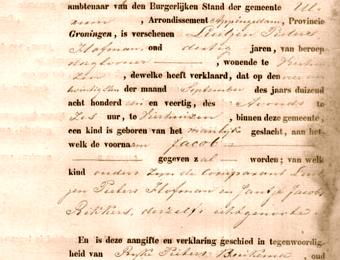 ambtenaar van den Burgerlijken Stand der gemeente Ul-
rum, Arrondissement Appingedam, Provincie
Groningen, is verschenen Luitjen Pieters
Hofman oud dertig jaren, van beroep
dagloner, wonende te Vierhui-
zen, dewelke heeft verklaard, dat op den
twintigsten der maand September des jaars duizend
acht honderd een veertig, des Avonds te
Zes uur, te Vierhuizen, binnen deze gemeente,
een kind is geboren van het mannelijke geslacht, aan het-
welk de voornaam Jacob
gegeven zal worden; van welk
kind ouders zijn de Comparant Luit-
jen Pieters Hofman en Jantje Jacobs
Rikkers, deszelfs echtgenoote
En is deze aangifte en verklaring geschied in tegenwoordig-
heid van Pieters Beukema, oud